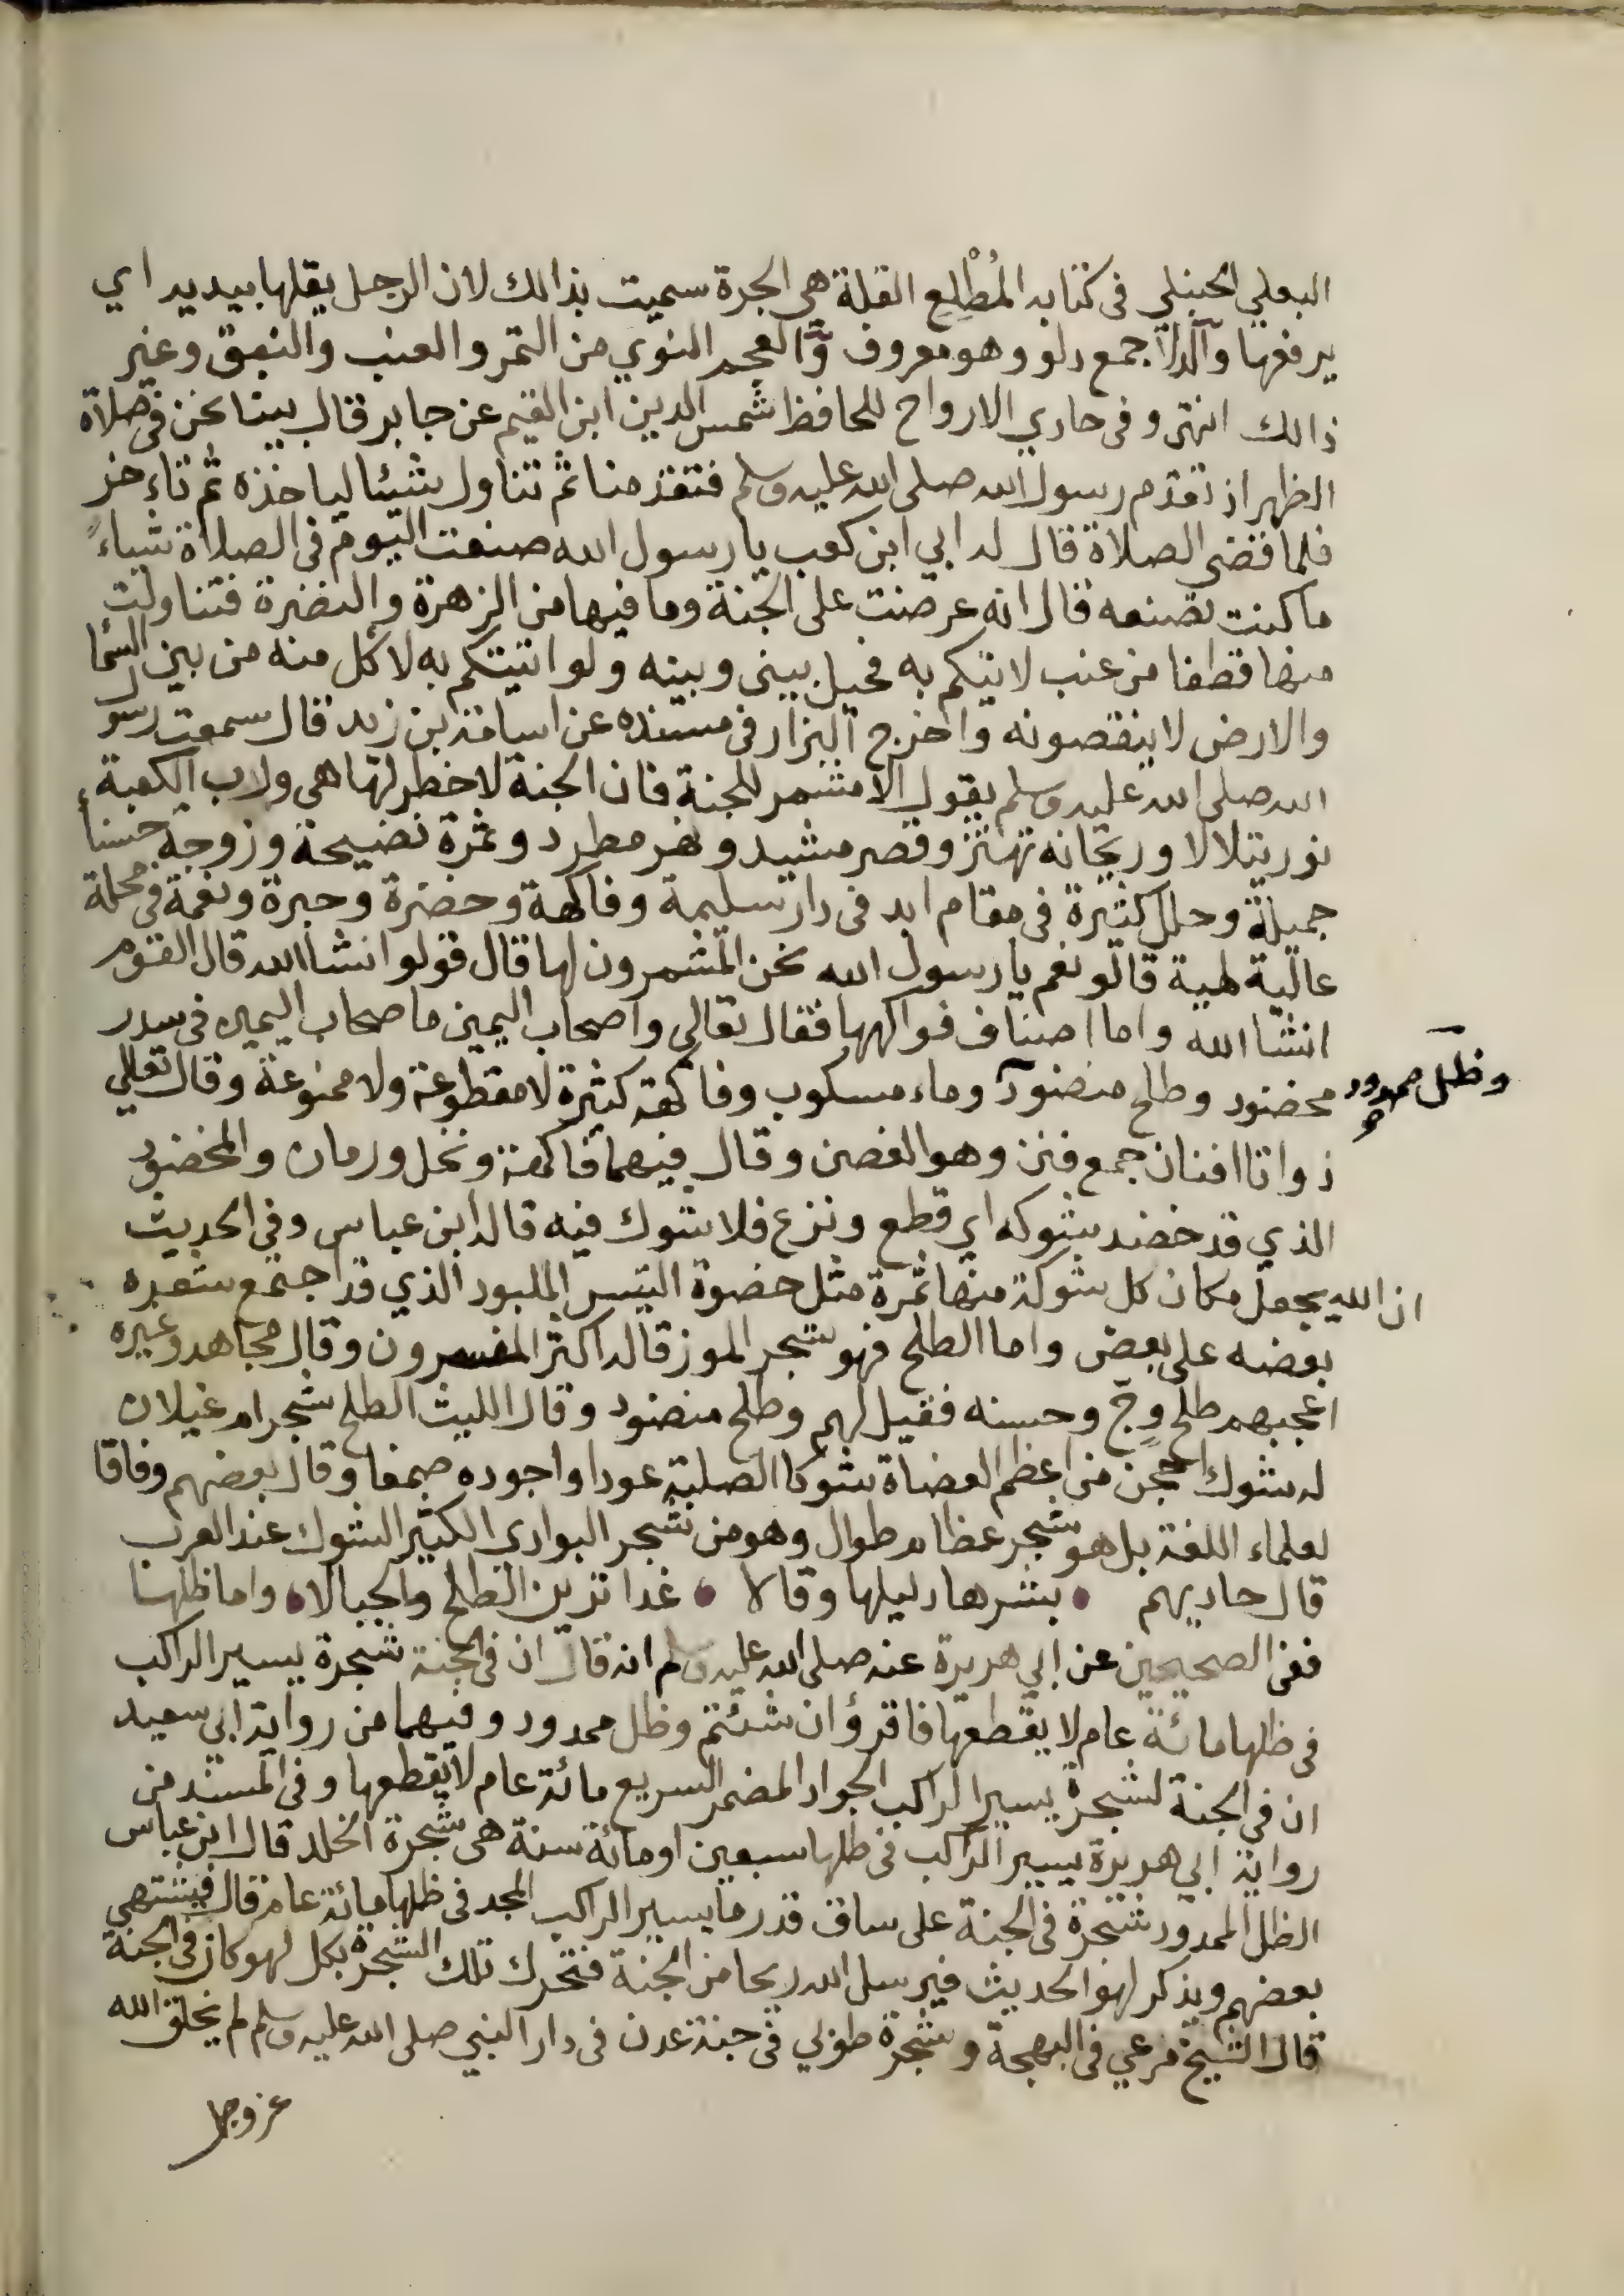 البعلي الحنبلي في كتابه المُطْلِع القلة هي الجرة سميت بذالك لان الرجل يقلها بيديه اي
يرفعها والدلاا جمع دلو وهو معروف والعجم النوي من التمر والعنب والنبق وغير
ذالك انتهى وفي حادي الارواح للحافظ شمس الدين ابن القيم عن جابر قال بينا نحن في صلاة
الظهر اذ تقدم رسول الله صلى الله عليه وسلم فتقدمنا ثم تناول شيئا لياخذه ثم تاءخر
فلما قضى الصلاة قال له ابي ابن كعب يا رسول الله صنعت اليوم في الصلاة شياءً
ما كنت تصنعه قال انه عرضت على الجنة وما فيها من الزهرة والنضرة فتناولت
منها قطفا من عنب لاتيكم به فحيل بيني وبينه ولو اتيتكم به لاكل منه من بين السما
والارض لا ينقصونه واخرج البزار في مسنده عن اسامة بن زيد قال سمعت رسول
الله صلى الله عليه وسلم يقول الا مشمر للجنة فان الجنة لا خطر لها هي ورب الكعبة
نور يتلالا وريحانه تهتز وقصر مشيد ونهر مطرد وثمرة نضيجة وزوجة حسناء
جميلة وحلل كثيرة في مقام ابد في دار سليمة وفاكهة وخضرة وحبرة ونعمة في محلة
عالية طيبة قالو نعم يا رسول الله نحن المشمرون لها قال قولو انشا الله قال القوم
انشا الله واما اصناف فواكهها فقال تعالى واصحاب اليمين ما صحاب اليمين في سدر
مخضود وطلح منضود وماء مسكوب وفاكهة كثيرة لا مقطوعة ولا ممنوعة وقال تعالي
وظل ممدود
ذواتا افنان جمع فنن وهو الغصن وقال فيهما فاكهة ونخل ورمان والمخضود
الذي قد خضد شوكه اي قطع ونزع فلا شوك فيه قاله ابن عباس وفي الحديث
ان الله يجعل مكان كل شوكة منها ثمرة مثل خضوة التيس الملبود الذي قد اجتمع شعره
بعضه على بعض واما الطلح فهو شجر الموز قاله اكثر المفسرون وقال مجاهد وغيره
اعجبهم طلح وجّ وحسنه فقيل لهم وطلح منضود وقال الليث الطلح شجر ام غيلان
له شوك احجن من اعظم العضاة شوكا الصلبة عودا واجوده صمغا وقال بعضهم وفاقا
لعلماء اللغة بل هو شجر عظام طوال وهو من شجر البوادى الكثير الشوك عند العرب
قال حاديهم • بشرها دليلها وقالا • غدا تزين الطلح والجبالا • واما ظلها
ففي الصحيحين عن ابي هريرة عنه صلى الله عليه وسلم انه قال ان في الجنة شجرة يسير الراكب
في ظلها مائة عام لا يقطعها فاقرؤ ان شئتم وظل ممدود وفيهما من رواية ابي سعيد
ان في الجنة لشجرة يسير الراكب الجواد المضمر السريع مائة عام لا يقطعها وفي المسند من
رواية ابي هريرة يسير الراكب في ظلها سبعين او مائة سنة هي شجرة الخلد قال ابن عباس
الظل الممدود شجرة في الجنة على ساق قدر ما يسير الراكب المجد في ظلها مائة عام قال فيشتهي
بعضهم ويذكر لهو الحديث فيرسل الله ريحا من الجنة فتحرك تلك الشجرة بكل لهو كان في الجنة
قال الشيخ مرعي في البهجة وشجرة طوبي في جنة عدن في دار النبي صلى الله عليه وسلم لم يخلق الله
عز وجل